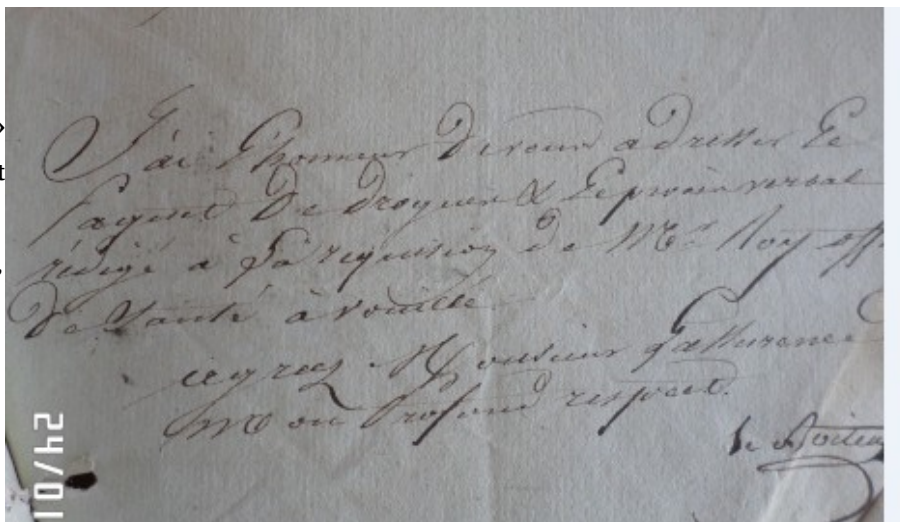 J'ai l'honneur de vous adresser le
paquet de drogues & le procès verbal
rédigé à la requisition de Mr. Roy off
de santé à vouillé
agreez Monsieur l'assurance
mon profond respect.
24/01